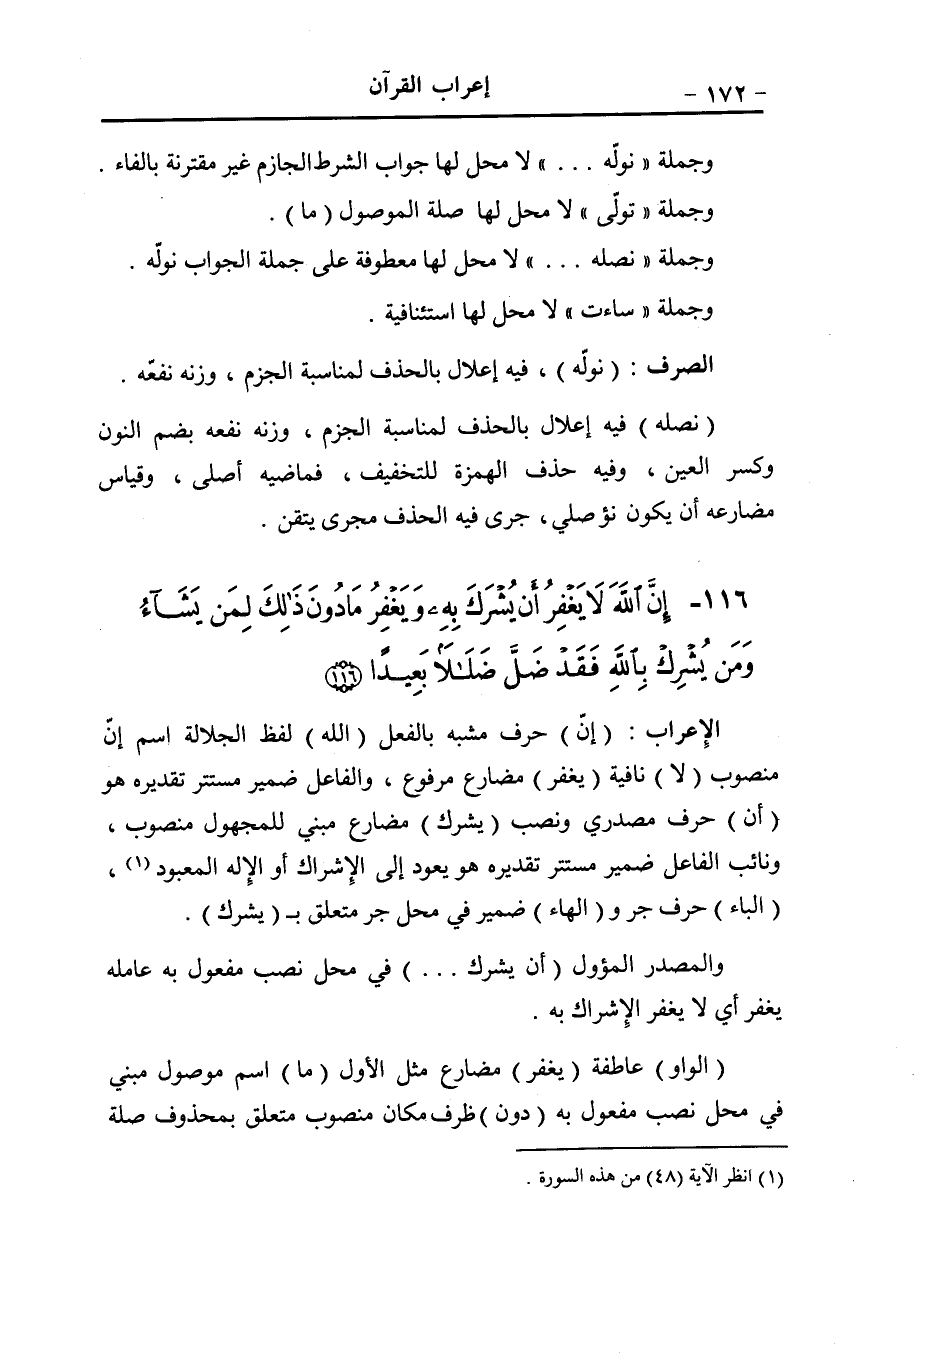 - ١٧٢ - إعراب القرآن
وجملة « نولّه . . . » لا محل لها جواب الشرط الجازم غير مقترنة بالفاء .
وجملة « تولّى » لا محل لها صلة الموصول ( ما ) .
وجملة « نصله . . . » لا محل لها معطوفة على جملة الجواب نولّه .
وجملة « ساءت » لا محل لها استئنافية .
الصرف : ( نولّه ) ، فيه إعلال بالحذف لمناسبة الجزم ، وزنه نفعّه .
( نصله ) فيه إعلال بالحذف لمناسبة الجزم ، وزنه نفعه بضم النون
وكسر العين ، وفيه حذف الهمزة للتخفيف ، فماضيه أصلى ، وقياس
مضارعه أن يكون نؤصلي ، جرى فيه الحذف مجرى يتقن .
١١٦- إِنَّ ٱللَّهَ لَا يَغْفِرُ أَن يُشْرَكَ بِهِۦ وَيَغْفِرُ مَا دُونَ ذَٰلِكَ لِمَن يَشَآءُ
وَمَن يُشْرِكْ بِٱللَّهِ فَقَدْ ضَلَّ ضَلَـٰلًۢا بَعِيدًا ١١٦
الإعراب : ( إنّ ) حرف مشبه بالفعل ( الله ) لفظ الجلالة اسم إنّ
منصوب ( لا ) نافية ( يغفر ) مضارع مرفوع ، والفاعل ضمير مستتر تقديره هو
( أن ) حرف مصدري ونصب ( يشرك ) مضارع مبني للمجهول منصوب ،
ونائب الفاعل ضمير مستتر تقديره هو يعود إلى الإشراك أو الإله المعبود (١) ،
( الباء ) حرف جر و ( الهاء ) ضمير في محل جر متعلق بـ ( يشرك ) .
والمصدر المؤول ( أن يشرك . . . ) في محل نصب مفعول به عامله
يغفر أي لا يغفر الإشراك به .
( الواو ) عاطفة ( يغفر ) مضارع مثل الأول ( ما ) اسم موصول مبني
في محل نصب مفعول به ( دون ) ظرف مكان منصوب متعلق بمحذوف صلة
(١) انظر الآية (٤٨) من هذه السورة .